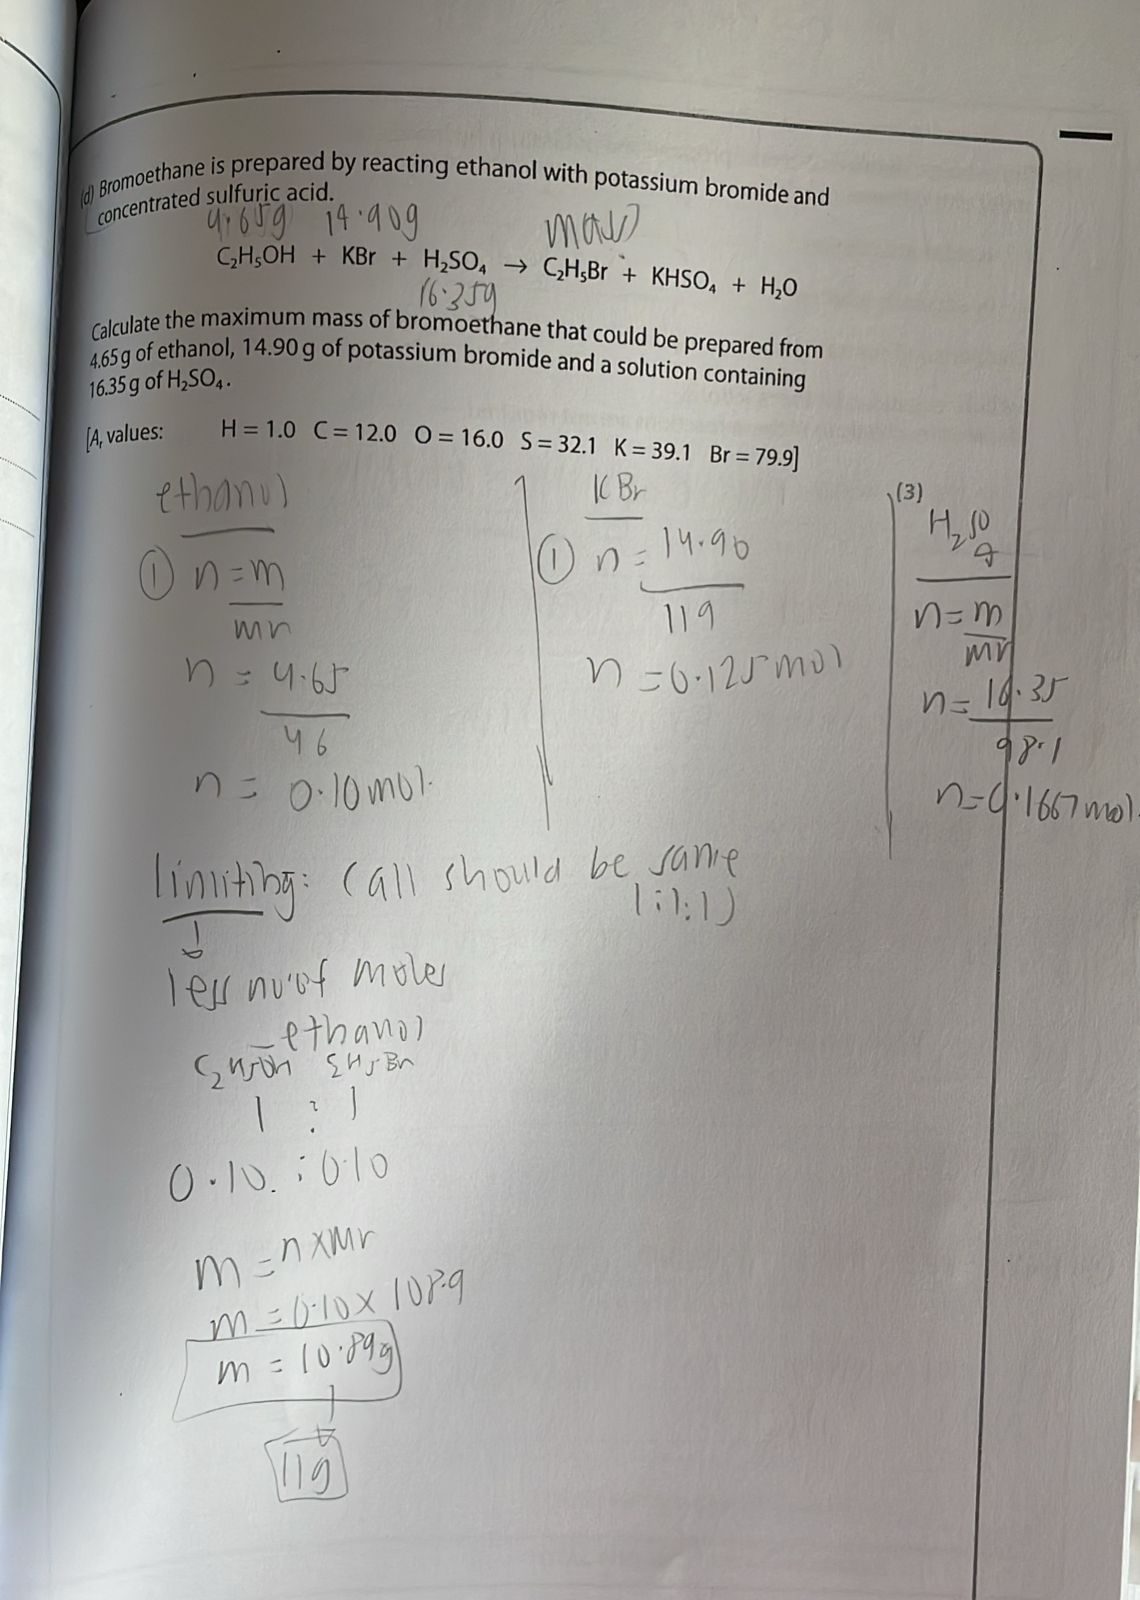 (d) Bromoethane is prepared by reacting ethanol with potassium bromide and
concentrated sulfuric acid.
4.65g 14.90g max
C₂H₅OH + KBr + H₂SO₄ → C₂H₅Br + KHSO₄ + H₂O
16.35g
Calculate the maximum mass of bromoethane that could be prepared from
4.65 g of ethanol, 14.90 g of potassium bromide and a solution containing
16.35 g of H₂SO₄.
[Aᵣ values: H = 1.0 C = 12.0 O = 16.0 S = 32.1 K = 39.1 Br = 79.9]
(3)
ethanol
① n = m
mr
n = 4.65
46
n = 0.10 mol.
KBr
① n = 14.90
119
n = 0.125 mol
H₂SO₄
n = m
mr
n = 16.35
98.1
n = 0.1667 mol.
limiting: (all should be same
1:1:1)
less no. of moles
– ethanol
C₂H₅OH C₂H₅Br
1 : 1
0.10 : 0.10
m = n × Mr
m = 0.10 × 108.9
m = 10.89g
11g